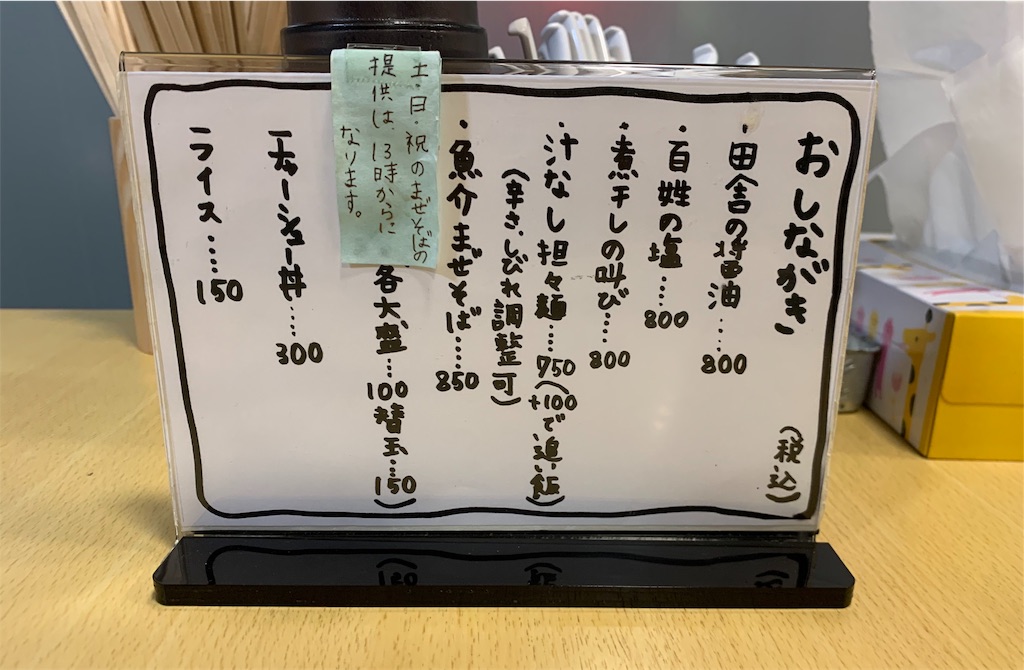 おしながき
(税込)
・田舎の醤油....800
・百姓の塩....800
・煮干しの叫び....800
・汁なし担々麺....750(+100で追い飯)
(辛さ、しびれ調整可)
・魚介まぜそば....850
各大盛...100替玉...150)
チャーシュー丼....300
ライス....150
土・日・祝のまぜそばの
提供は、13時からに
なります。